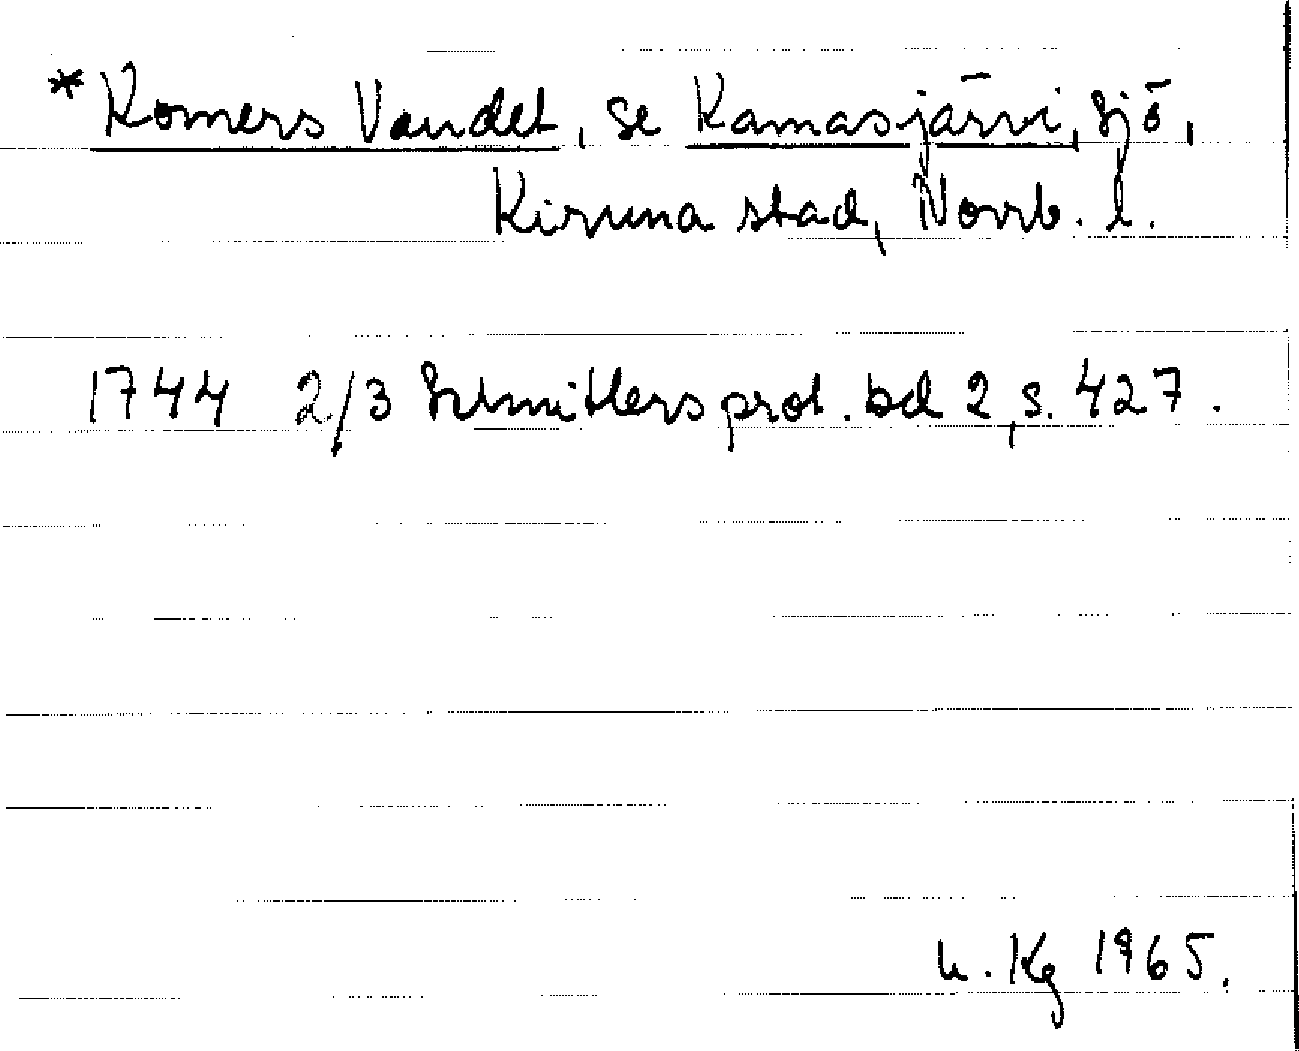 *Komers Vandet, se Kamasjärvi, sjö,
Kiruna stad, Norrb. l.
1744 2/3 Schnitlers prot. bd 2, s. 427.
u. Kg 1965.